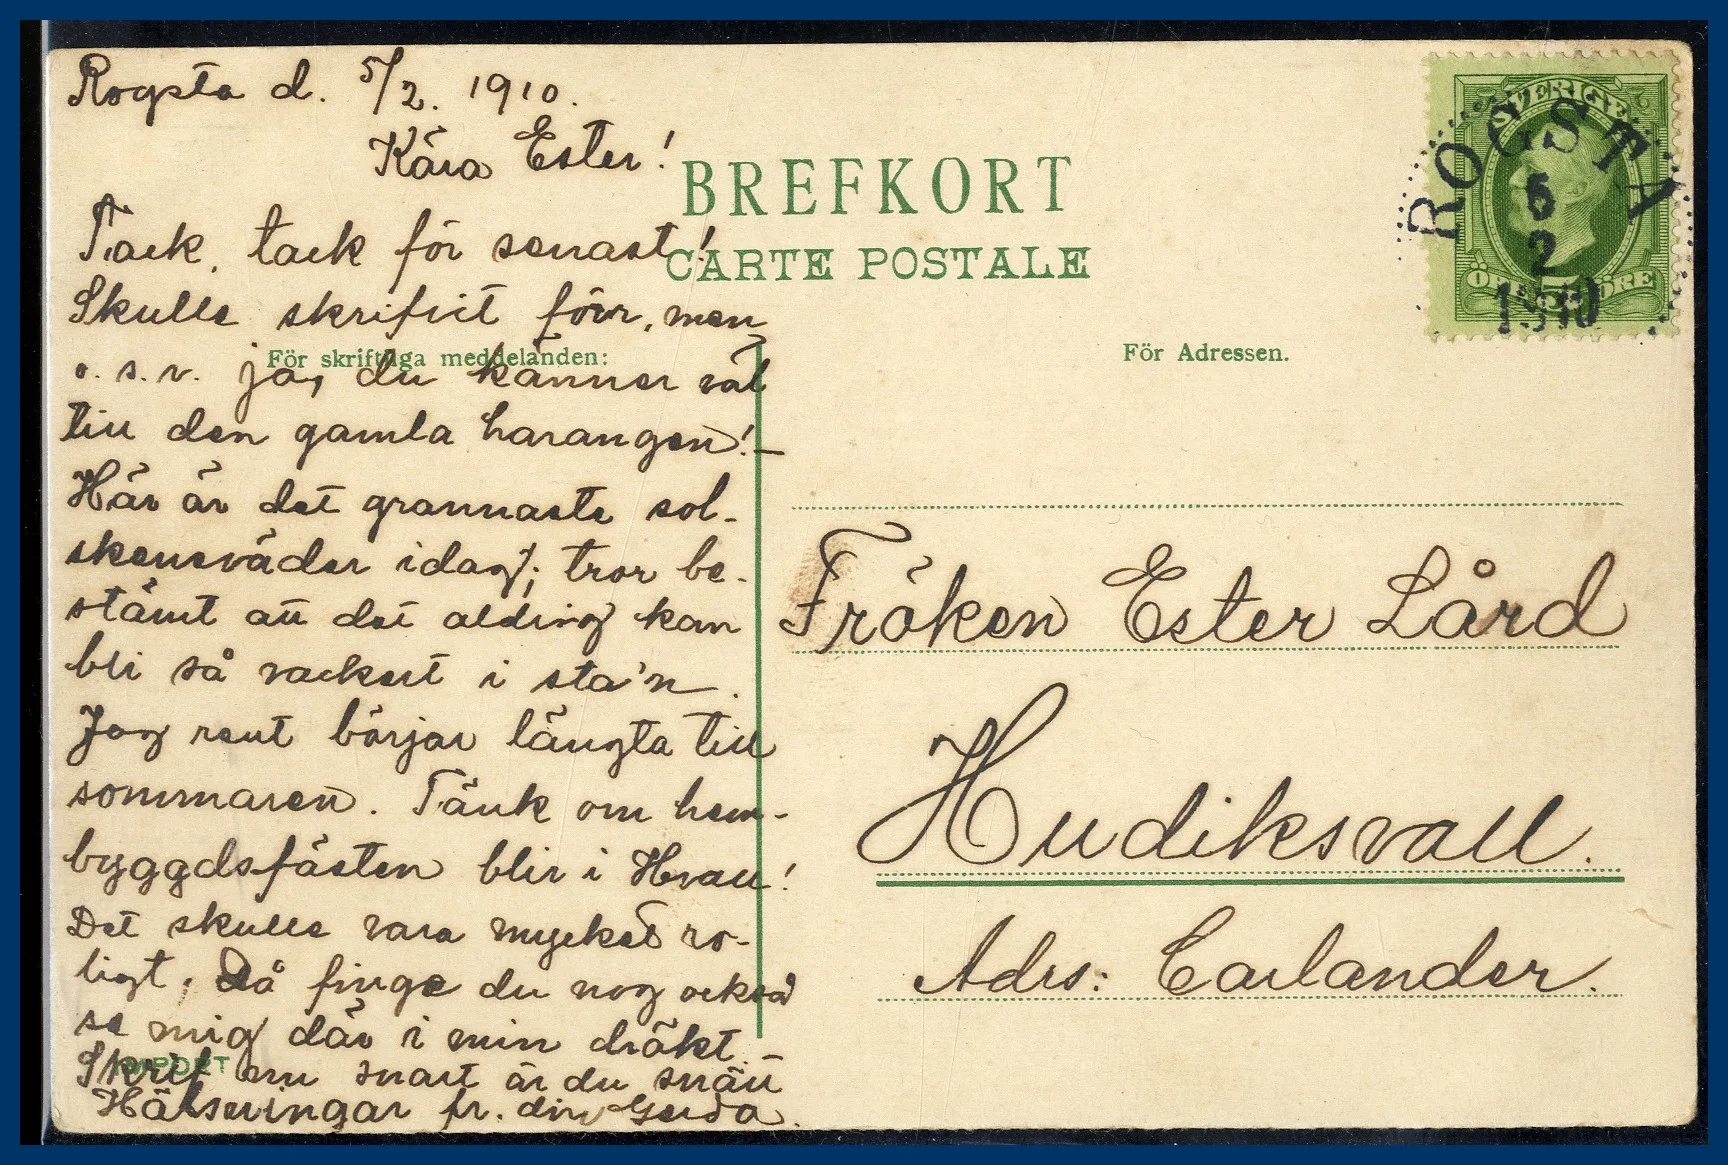 Rogsta d. 5/2. 1910.
Kära Ester!
Tack, tack för senast!
Skulle skrifvit förr, men
o. s. v. ja, du känner väl
till den gamla harangen! –
Här är det grannaste sol-
skensväder idag; tror be-
stämt att det aldrig kan
bli så vackert i sta'n.
Jag rent börjar längta till
sommaren. Tänk om hem-
byggdsfästen blir i Hvall!
Det skulle vara mycket ro-
ligt, då finge du nog också
se mig där i min dräkt. –
Skrif nu snart är du snäll
Hälsningar fr. din Gerda.
BREFKORT
CARTE POSTALE
För skriftliga meddelanden:
För Adressen.
IMPORT
SVERIGE
ÖRE 5 ÖRE
ROGSTA
5
2
1910
Fröken Ester Lård
Hudiksvall.
Adrs: Carlander.